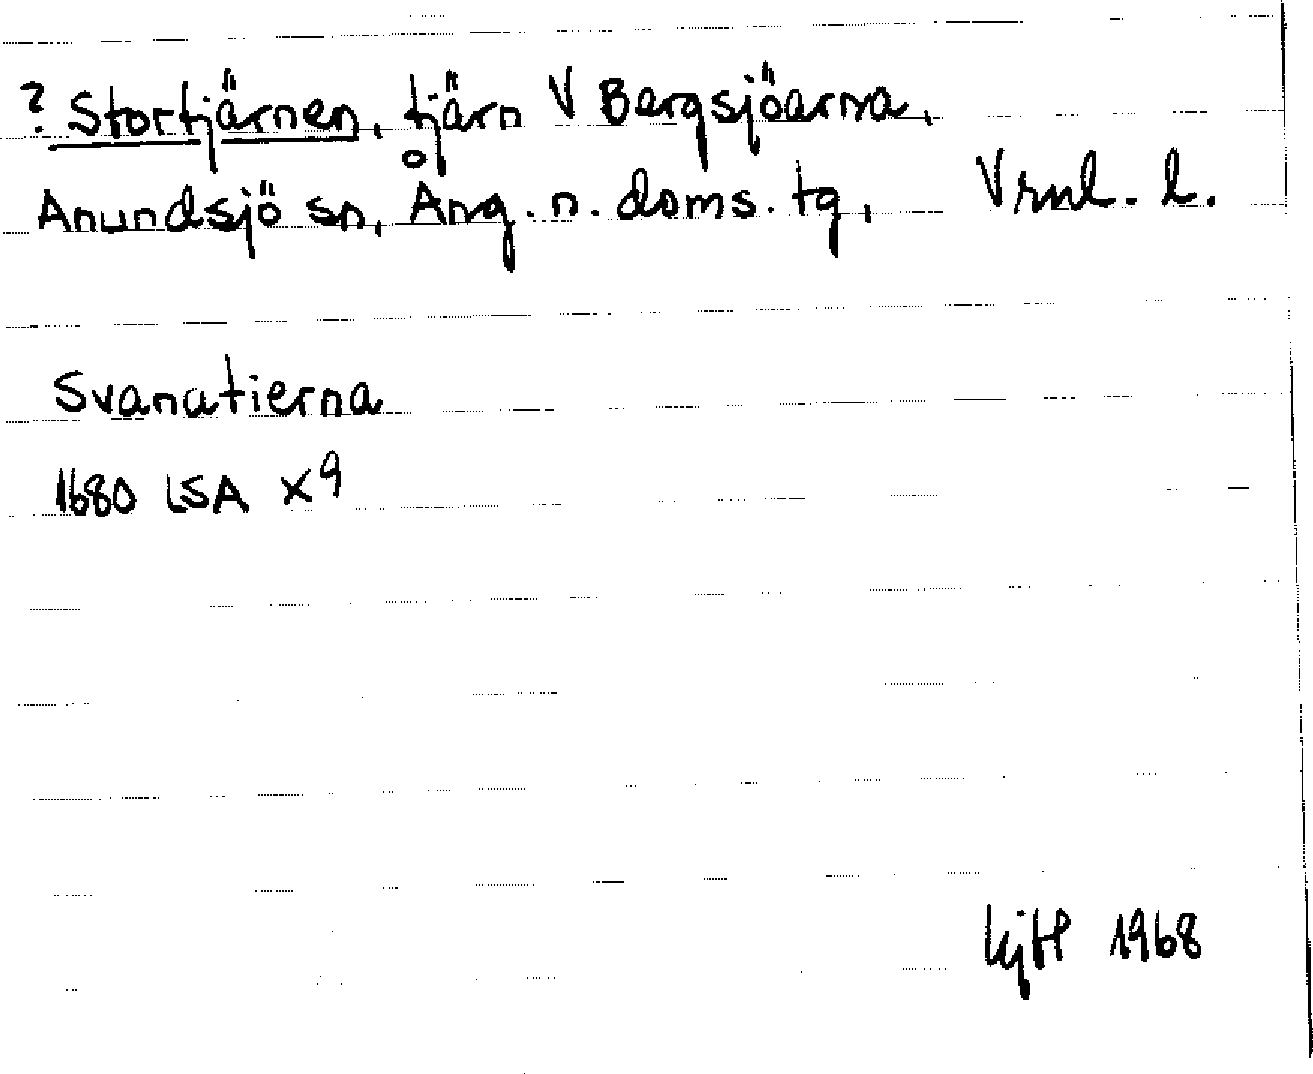 ? Stortjärnen, tjärn V Bergsjöarna,
Anundsjö sn, Ång. n. doms. tg, Vrml. l.
Svanatierna
1680 LSA X9
1968